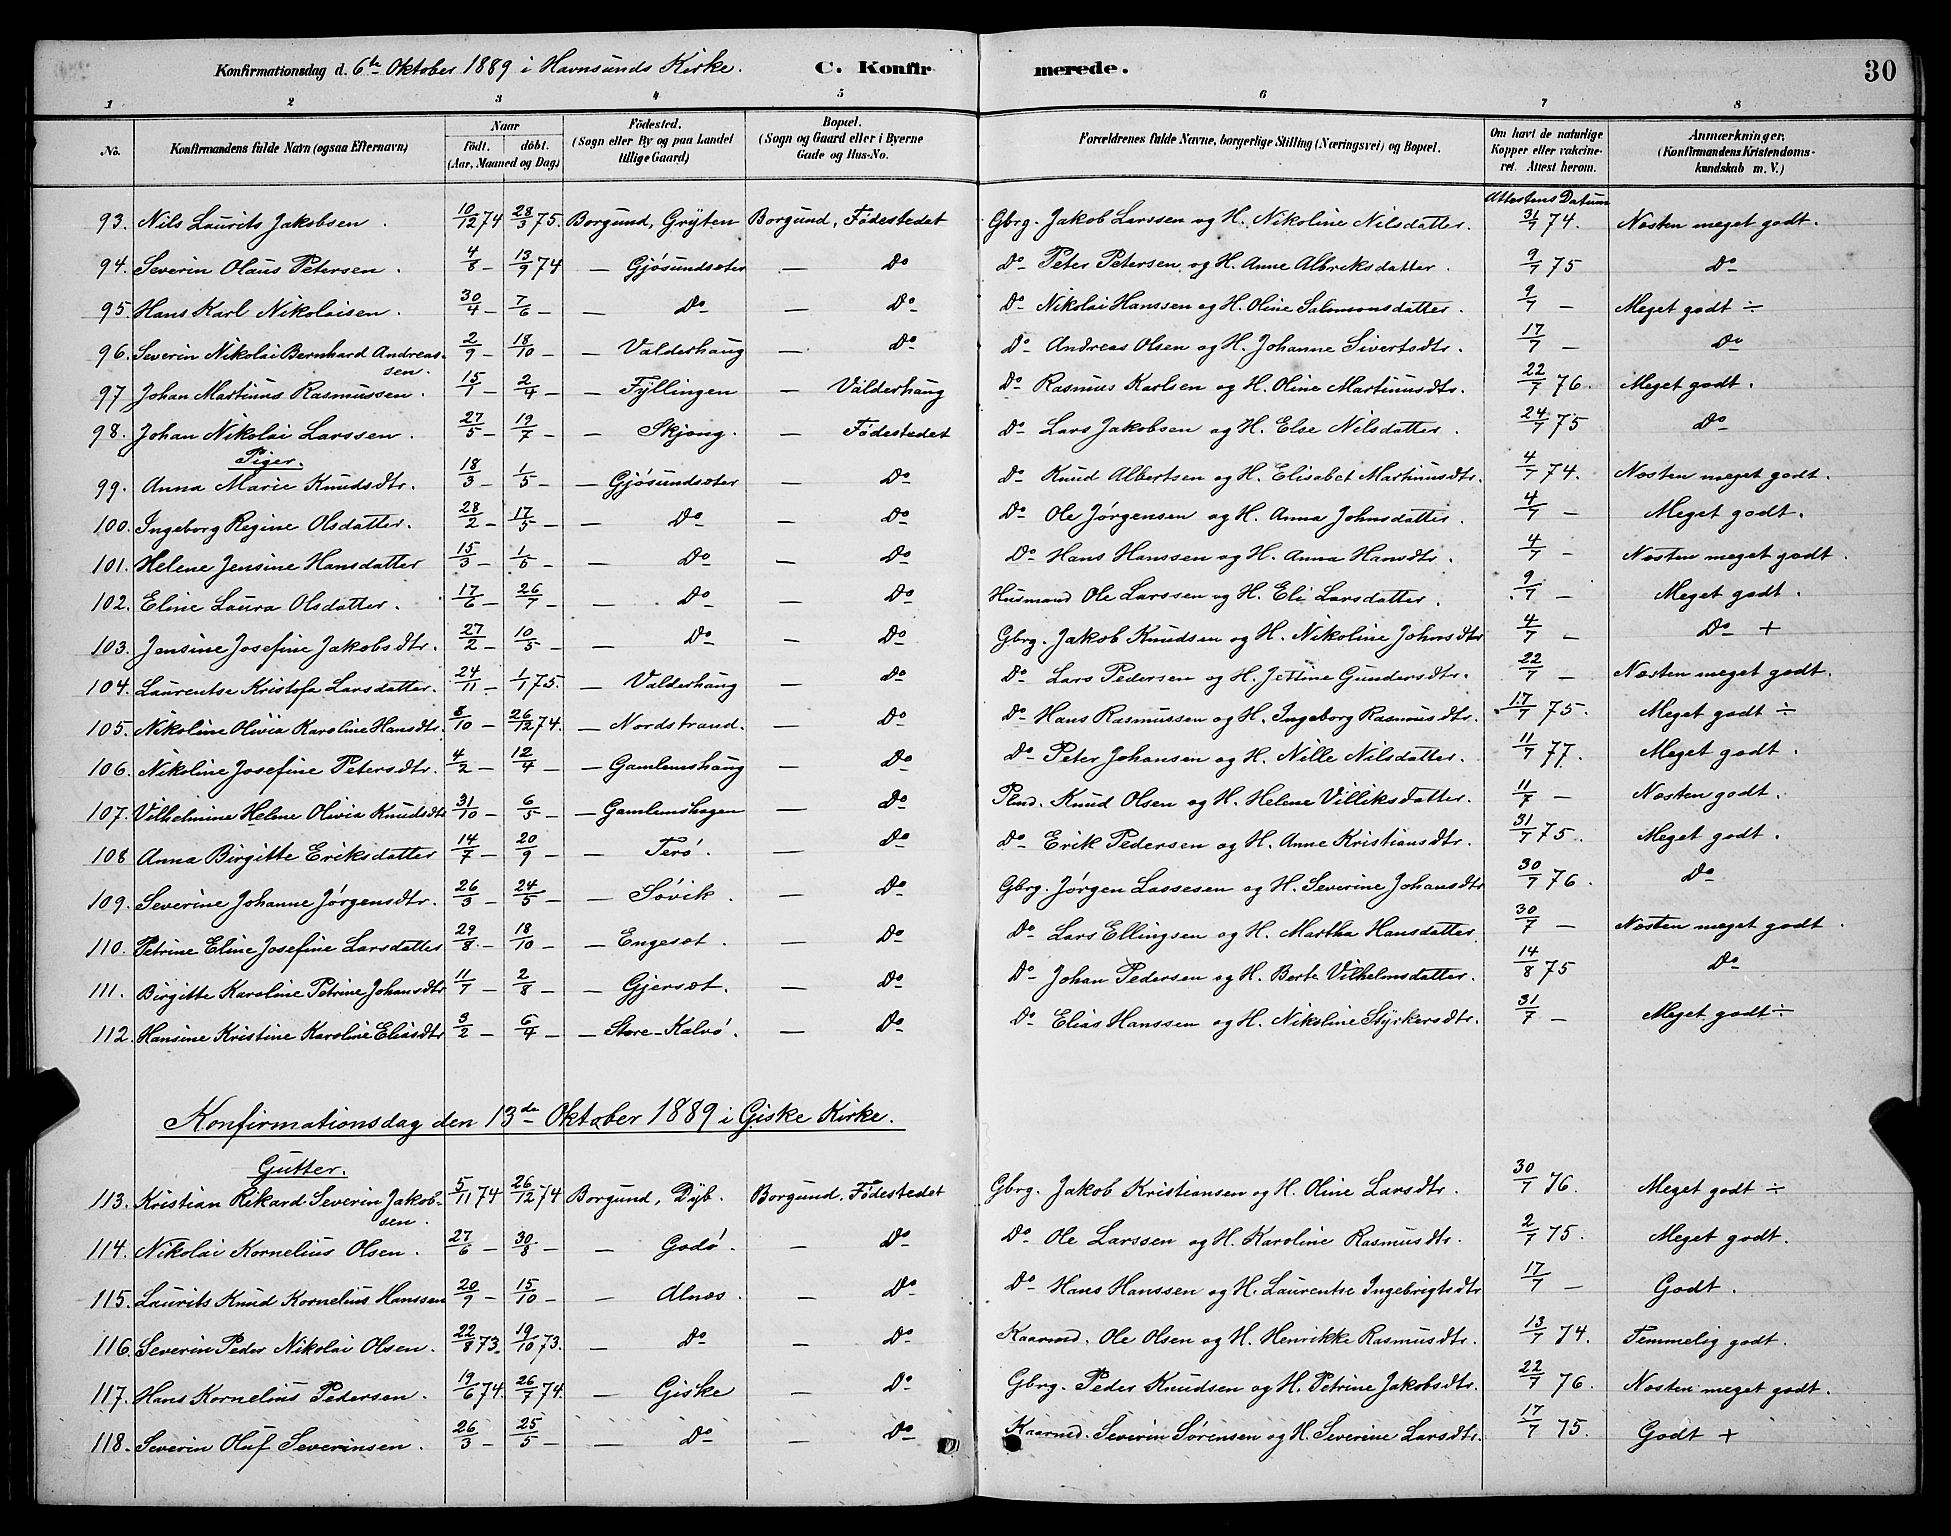 Konfirmationsdag d. 6te Oktober 1889 i Havnsunds Kirke. C. Konfirmerede. 30
1 2 3 4 5 6 7 8
No. Konfirmandens fulde Navn (ogsaa Efternavn) Naar födt. döbt. (Aar, Maaned og Dag) Födested. (Sogn eller By og paa Landet tillige Gaard) Bopæl. (Sogn og Gaard eller i Byerne Gade og Hus-No. Forældrenes fulde Navne, borgerlige Stilling (Næringsvei) og Bopæl. Om havt de naturlige Kopper eller vakcineret. Attest herom. Anmærkninger, (Konfirmandens Kristendomskundskab m. V.)
Attestens Datum
93. Nils Laurits Jakobsen. 10/12 74 28/3 75. Borgund, Gryten Borgund, Födestedet Gbrg. Jakob Larssen og H. Nikoline Nilsdatter. 31/7 74. Næsten meget godt.
94. Severin Olaus Petersen. 4/8 – 13/9 74 – Gjøsundsæter – Do Do Peter Petersen og H. Anne Albreksdatter. 9/7 75 Do
95. Hans Karl Nikolaisen. 30/4 – 7/6 – – Do – Do Do Nikolai Hanssen og H. Oline Salmonsdatter. 9/7 – Meget godt ÷
96. Severin Nikolai Bernhard Andreassen. 2/9 – 18/10 – – Valderhaug – Do Do Andreas Olsen og H. Johanne Sivertsdtr. 17/7 – Do
97 Johan Martinus Rasmussen. 15/1 – 2/4 – – Fyllingen – Valderhaug Do Rasmus Karlsen og H. Oline Martinusdtr. 22/7 76. Meget godt.
98. Johan Nikolai Larssen. 27/5 – 19/7 – – Skjong. – Födestedet Do Lars Jakobsen og H. Else Nilsdatter. 24/7 75 Do
Piger.
99. Anna Marie Knudsdtr. 18/3 – 1/5 – – Gjøsundsæter – Do Do Knud Albertsen og H. Elisabet Martinusdtr. 4/7 74. Næsten meget godt.
100. Ingeborg Regine Olsdatter. 28/2 – 17/5 – – Do – Do Do Ole Jørgensen og H. Anna Johnsdatter. 4/7 – Meget godt.
101. Helene Jensine Hansdatter 15/3 – 1/5 – – Do – Do Do Hans Hanssen og H. Anna Hansdtr. 4/7 – Næsten meget godt.
102. Eline Laura Olsdatter. 17/6 – 26/7 – – Do – Do Husmand Ole Larssen og H. Eli Larsdatter. 9/7 – Meget godt.
103. Jensine Josefine Jakobsdtr. 27/2 – 10/5 – – Do – Do Gbrg. Jakob Knudsen og H. Nikoline Johnsdtr 4/7 – Do +
104. Laurentse Kristofa Larsdatter. 24/11 – 1/1 75. – Valderhaug – Do Do Lars Pedersen og H. Jettine Gundersdtr. 22/7 – Næsten meget godt.
105. Nikoline Olivia Karoline Hansdtr. 8/10 – 26/12 74. – Nordstrand. – Do Do Hans Rasmussen og H. Ingeborg Rasmusdtr. 17/7 75. Meget godt ÷
106. Nikoline Josefine Petersdtr. 4/2 – 12/4 – – Gamlemshaug – Do Do Peter Johansen og H. Nille Nilsdatter. 11/7 77. Meget godt.
107. Vilhelmine Helene Olivia Knudsdtr 31/10 – 6/5 – – Gamlemshagen – Do Plnd. Knud Olsen og H. Helene Villiksdatter. 11/7 – Næsten godt.
108 Anna Birgitte Eriksdatter 14/7 – 20/9 – – Terø. – Do Do Erik Pedersen og H. Anne Kristiansdtr. 31/7 75. Meget godt.
109. Severine Johanne Jørgensdtr. 26/3 – 24/5 – – Søvik. – Do Gbrg. Jørgen Lassesen og H. Severine Johansdtr 30/7 76. Do
110. Petrine Eline Josefine Larsdatter 29/8 – 18/10 – – Engeset. – Do Do Lars Ellingsen og H. Martha Hansdatter 30/7 – Næsten meget godt.
111. Birgitte Karoline Petrine Johansdtr 11/7 – 2/8 – – Gjerset. – Do Do Johan Pedersen og H. Berte Vilhelmsdatter. 14/8 75 Do
112. Hansine Kristine Karoline Eliasdtr 3/2 – 6/4 – – Store-Kalvø. – Do Do Elias Hanssen og H. Nikoline Styrkersdtr. 31/7 – Meget godt ÷
Konfirmationsdag den 13de Oktober 1889 i Giske Kirke.
Gutter.
113. Kristian Rikard Severin Jakobsen. 5/11 74 26/12 74 Borgund, Dyb. Borgund, Födestedet Gbrg. Jakob Kristiansen og H. Oline Larsdtr. 30/7 76. Meget godt ÷
114. Nikolai Kornelius Olsen. 27/6 – 30/8 – – Godø. – Do Do Ole Larssen og H. Karoline Rasmusdtr. 2/7 75. Meget godt.
115. Laurits Knud Kornelius Hanssen 20/9 – 15/10 – – Alnæs. – Do Do Hans Hanssen og H. Laurentse Ingebrigtsdtr 17/7 – Godt.
116. Severin Peder Nikolai Olsen. 22/8 73. 19/10 73. – Do – Do Kaarmd. Ole Olsen og H. Henrikke Rasmusdtr. 13/7 74. Temmelig godt.
117. Hans Kornelius Pedersen. 19/6 74. 26/7 74. – Giske – Do Gbrg. Peder Knudsen og H. Petrine Jakobsdtr. 22/7 76. Næsten meget godt.
118. Severin Oluf Severinsen. 26/3 – 25/5 – – Do – Do Kaarmd. Severin Sørensen og H. Severine Larsdtr. 17/7 75. Godt +